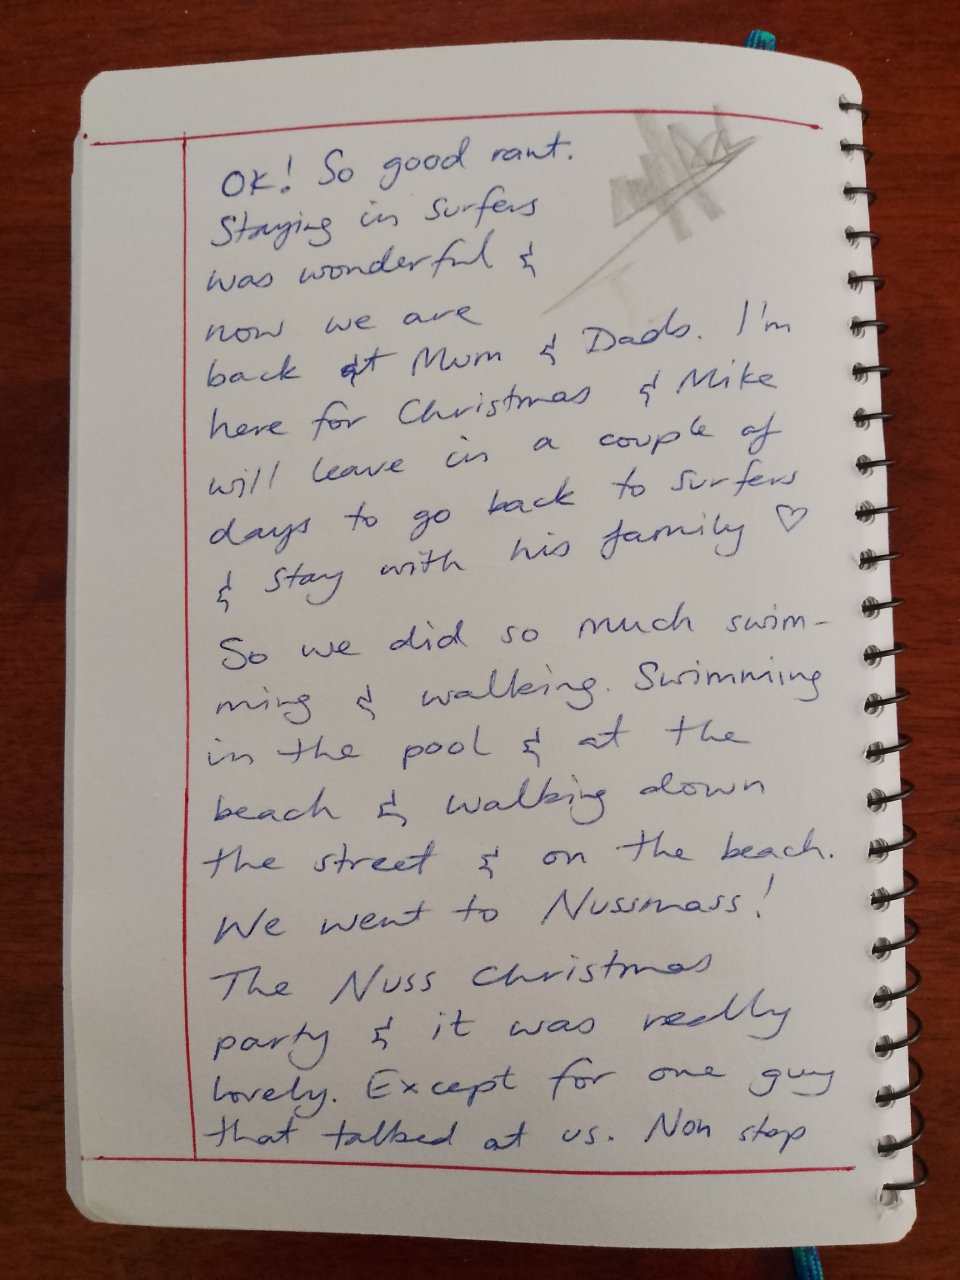 OK! So good rant.
Staying in Surfers
was wonderful &
now we are
back at Mum & Dads. I'm
here for Christmas & Mike
will leave in a couple of
days to go back to Surfers
& stay with his family ♡
So we did so much swim-
ming & walking. Swimming
in the pool & at the
beach & walking down
the street & on the beach.
We went to Nussmass!
The Nuss Christmas
party & it was really
lovely. Except for one guy
that talked at us. Non stop